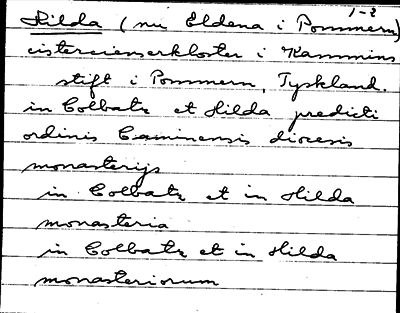 1-2
Hilda (nu Eldena i Pommern)
cistercienserkloster i Kammins
stift i Pommern, Tyskland.
in Colbatz et Hilda predicti
ordinis Caminensis diocesis
monasterijs
in Colbatz et in Hilda
monasteria
in Colbatz et in Hilda
monasteriorum